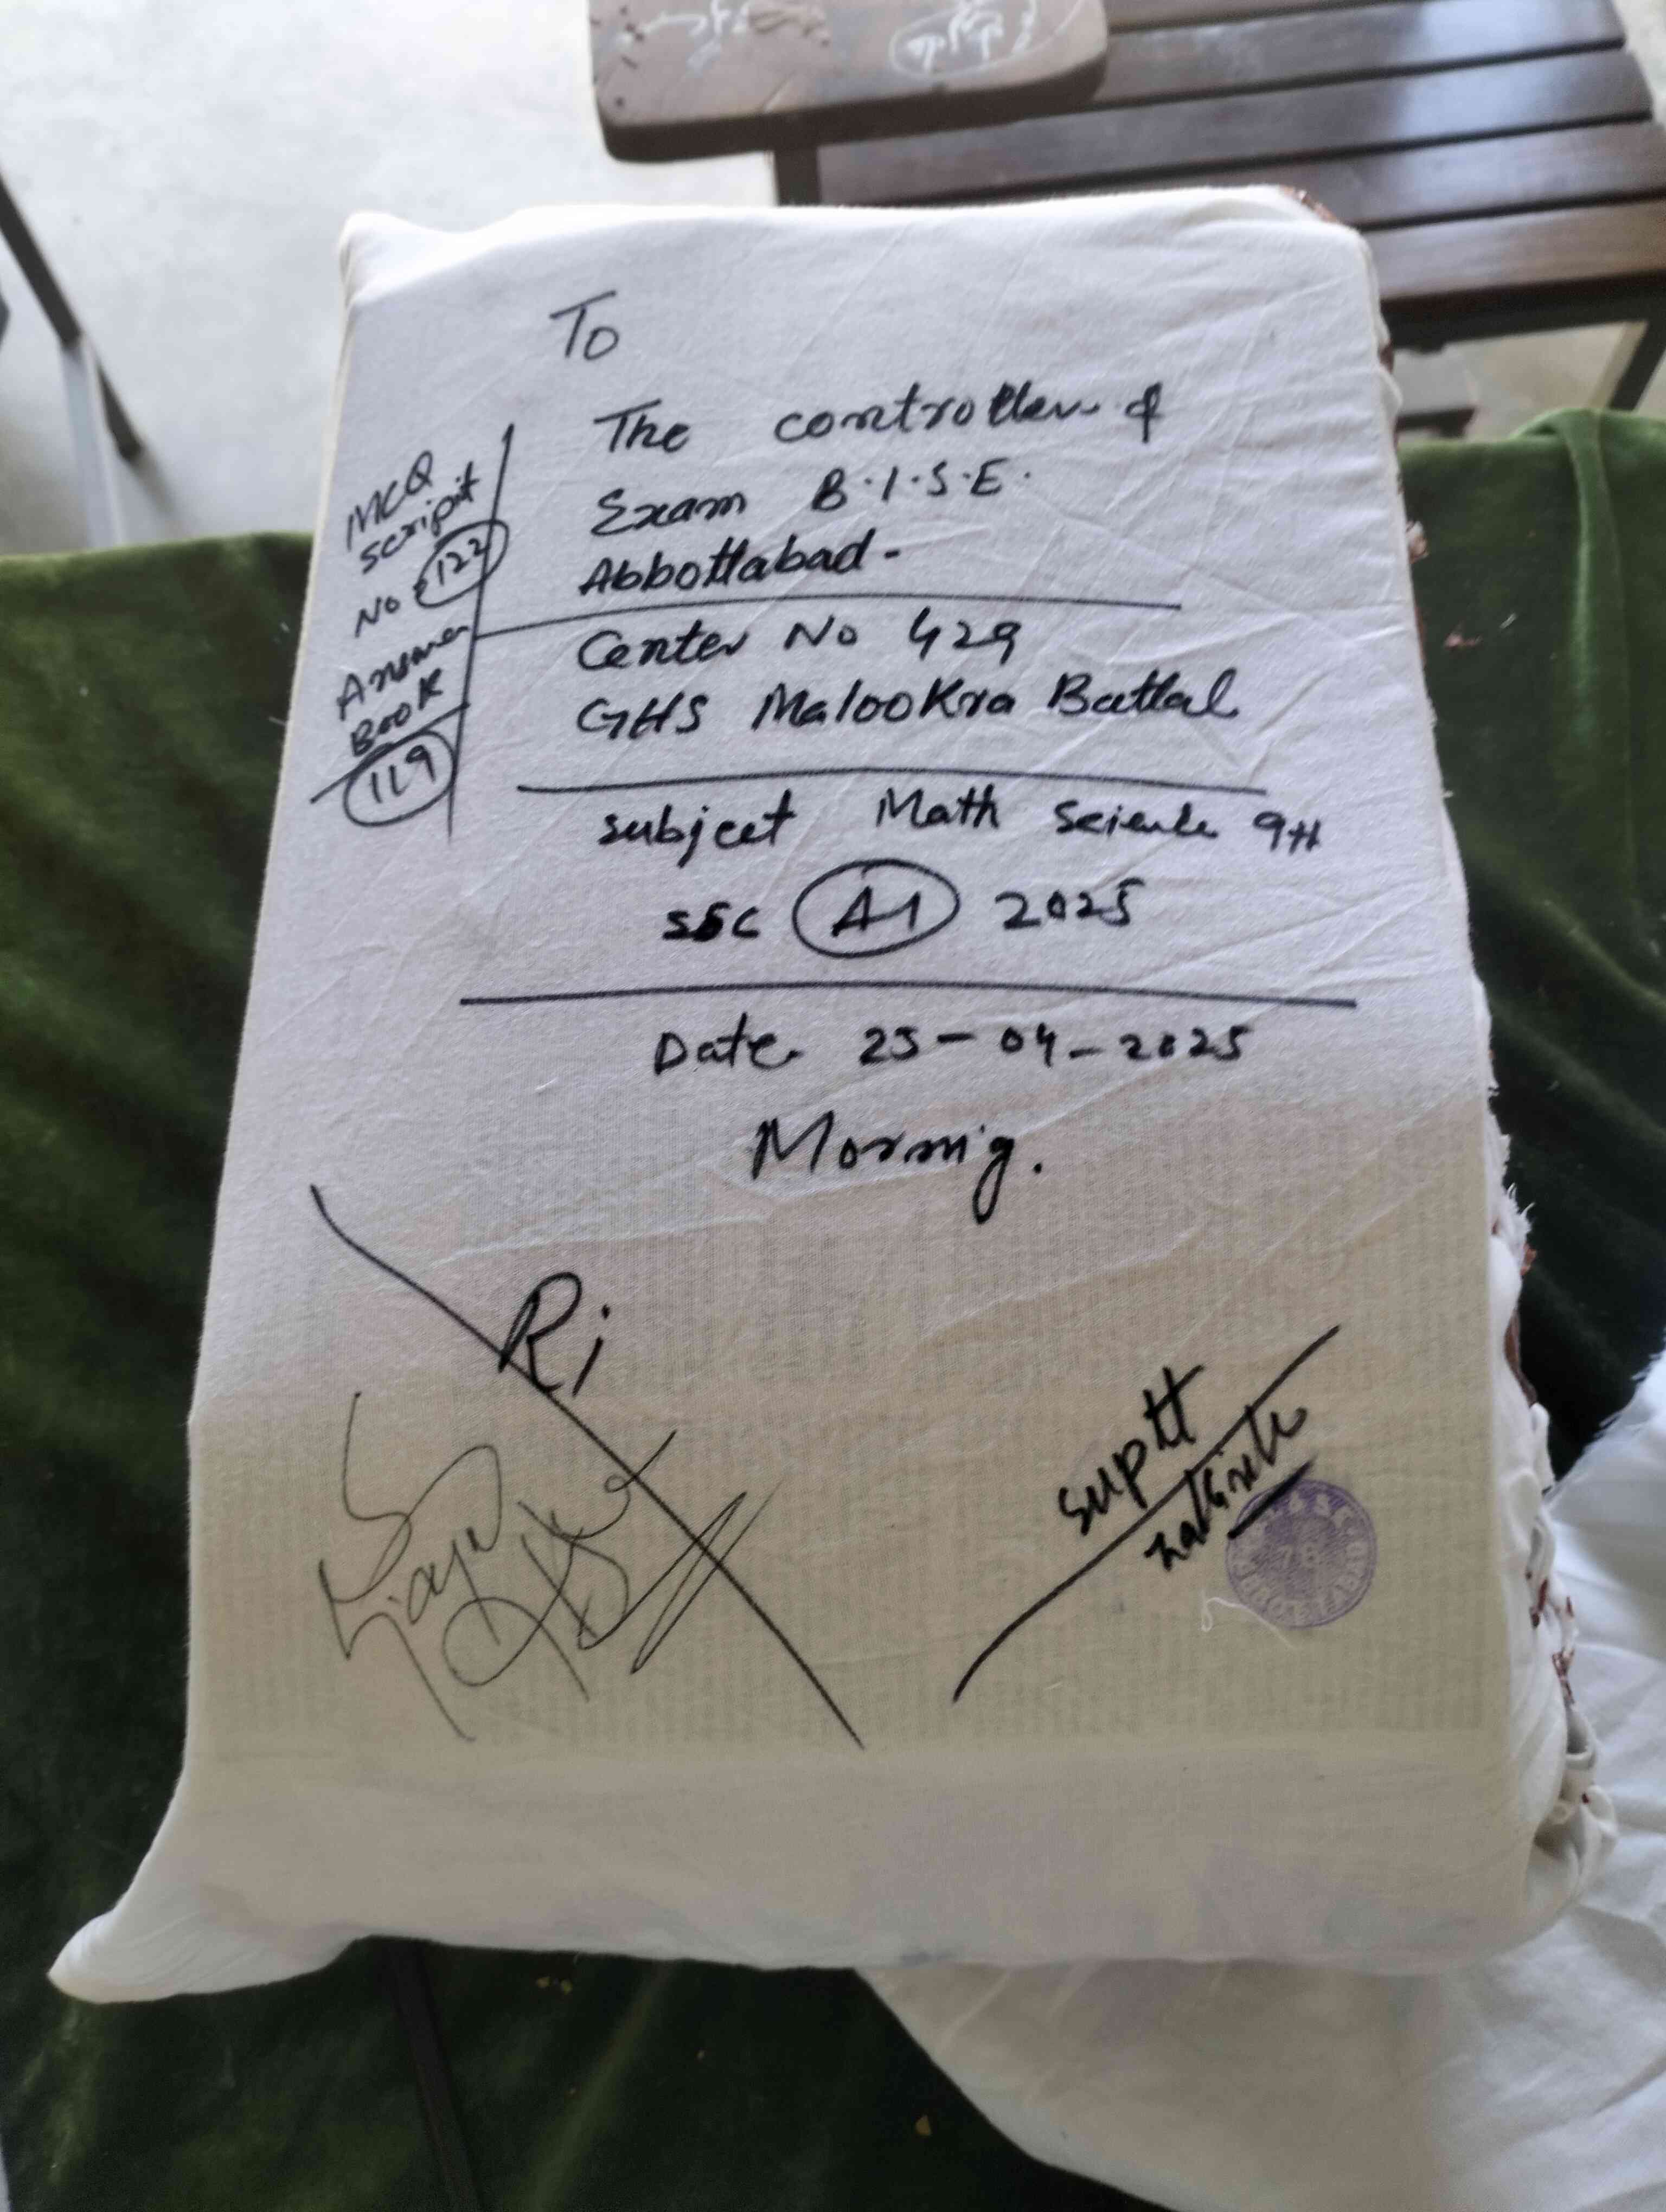 To
The controller of
Exam B.I.S.E.
Abbottabad-
MCQ
script
No = 122
Answer
Book
119
Center No 429
GHS Malookra Battal
subject Math Science 9th
SSC A1 2025
Date 25-04-2025
Morning.
Ri
suptt